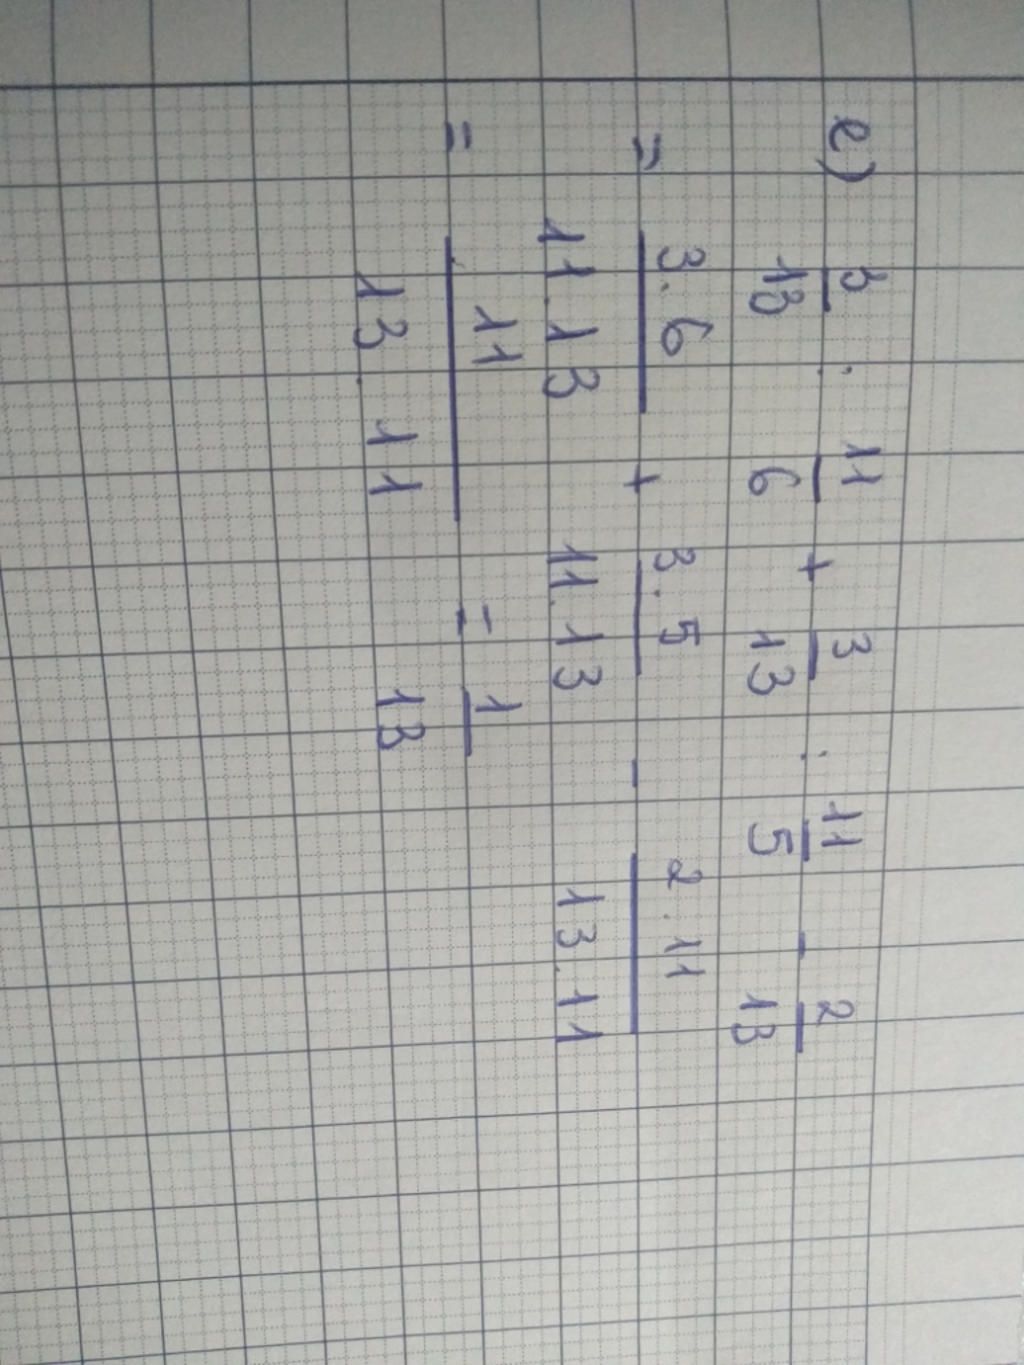 e) 3/13 : 11/6 + 3/13 : 11/5 - 2/13
= 3.6/11.13 + 3.5/11.13 - 2.11/13.11
= 11/13.11 = 1/13